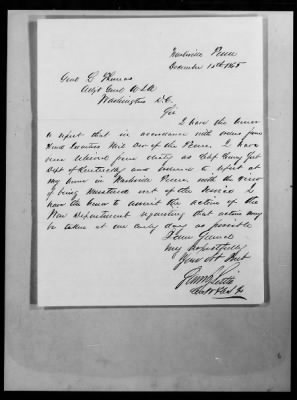 Nashville Tenn
December 15th 1865
Genl L Thomas
Adjt Genl U.S.A
Washington D.C.
Sir
I have the honor
to report that in accordance with orders from
Head Quarters Mil Div of the Tenn. I have
been relieved from duty as
Dept of Kentucky and ordered to report at
my home in Nashville Tenn. with the view
of being mustered out of the service I
have the honor to await the action of the
War Department requesting that action may
be taken at as early day as possible
I am General
Very Respectfully
Your Obt Servt